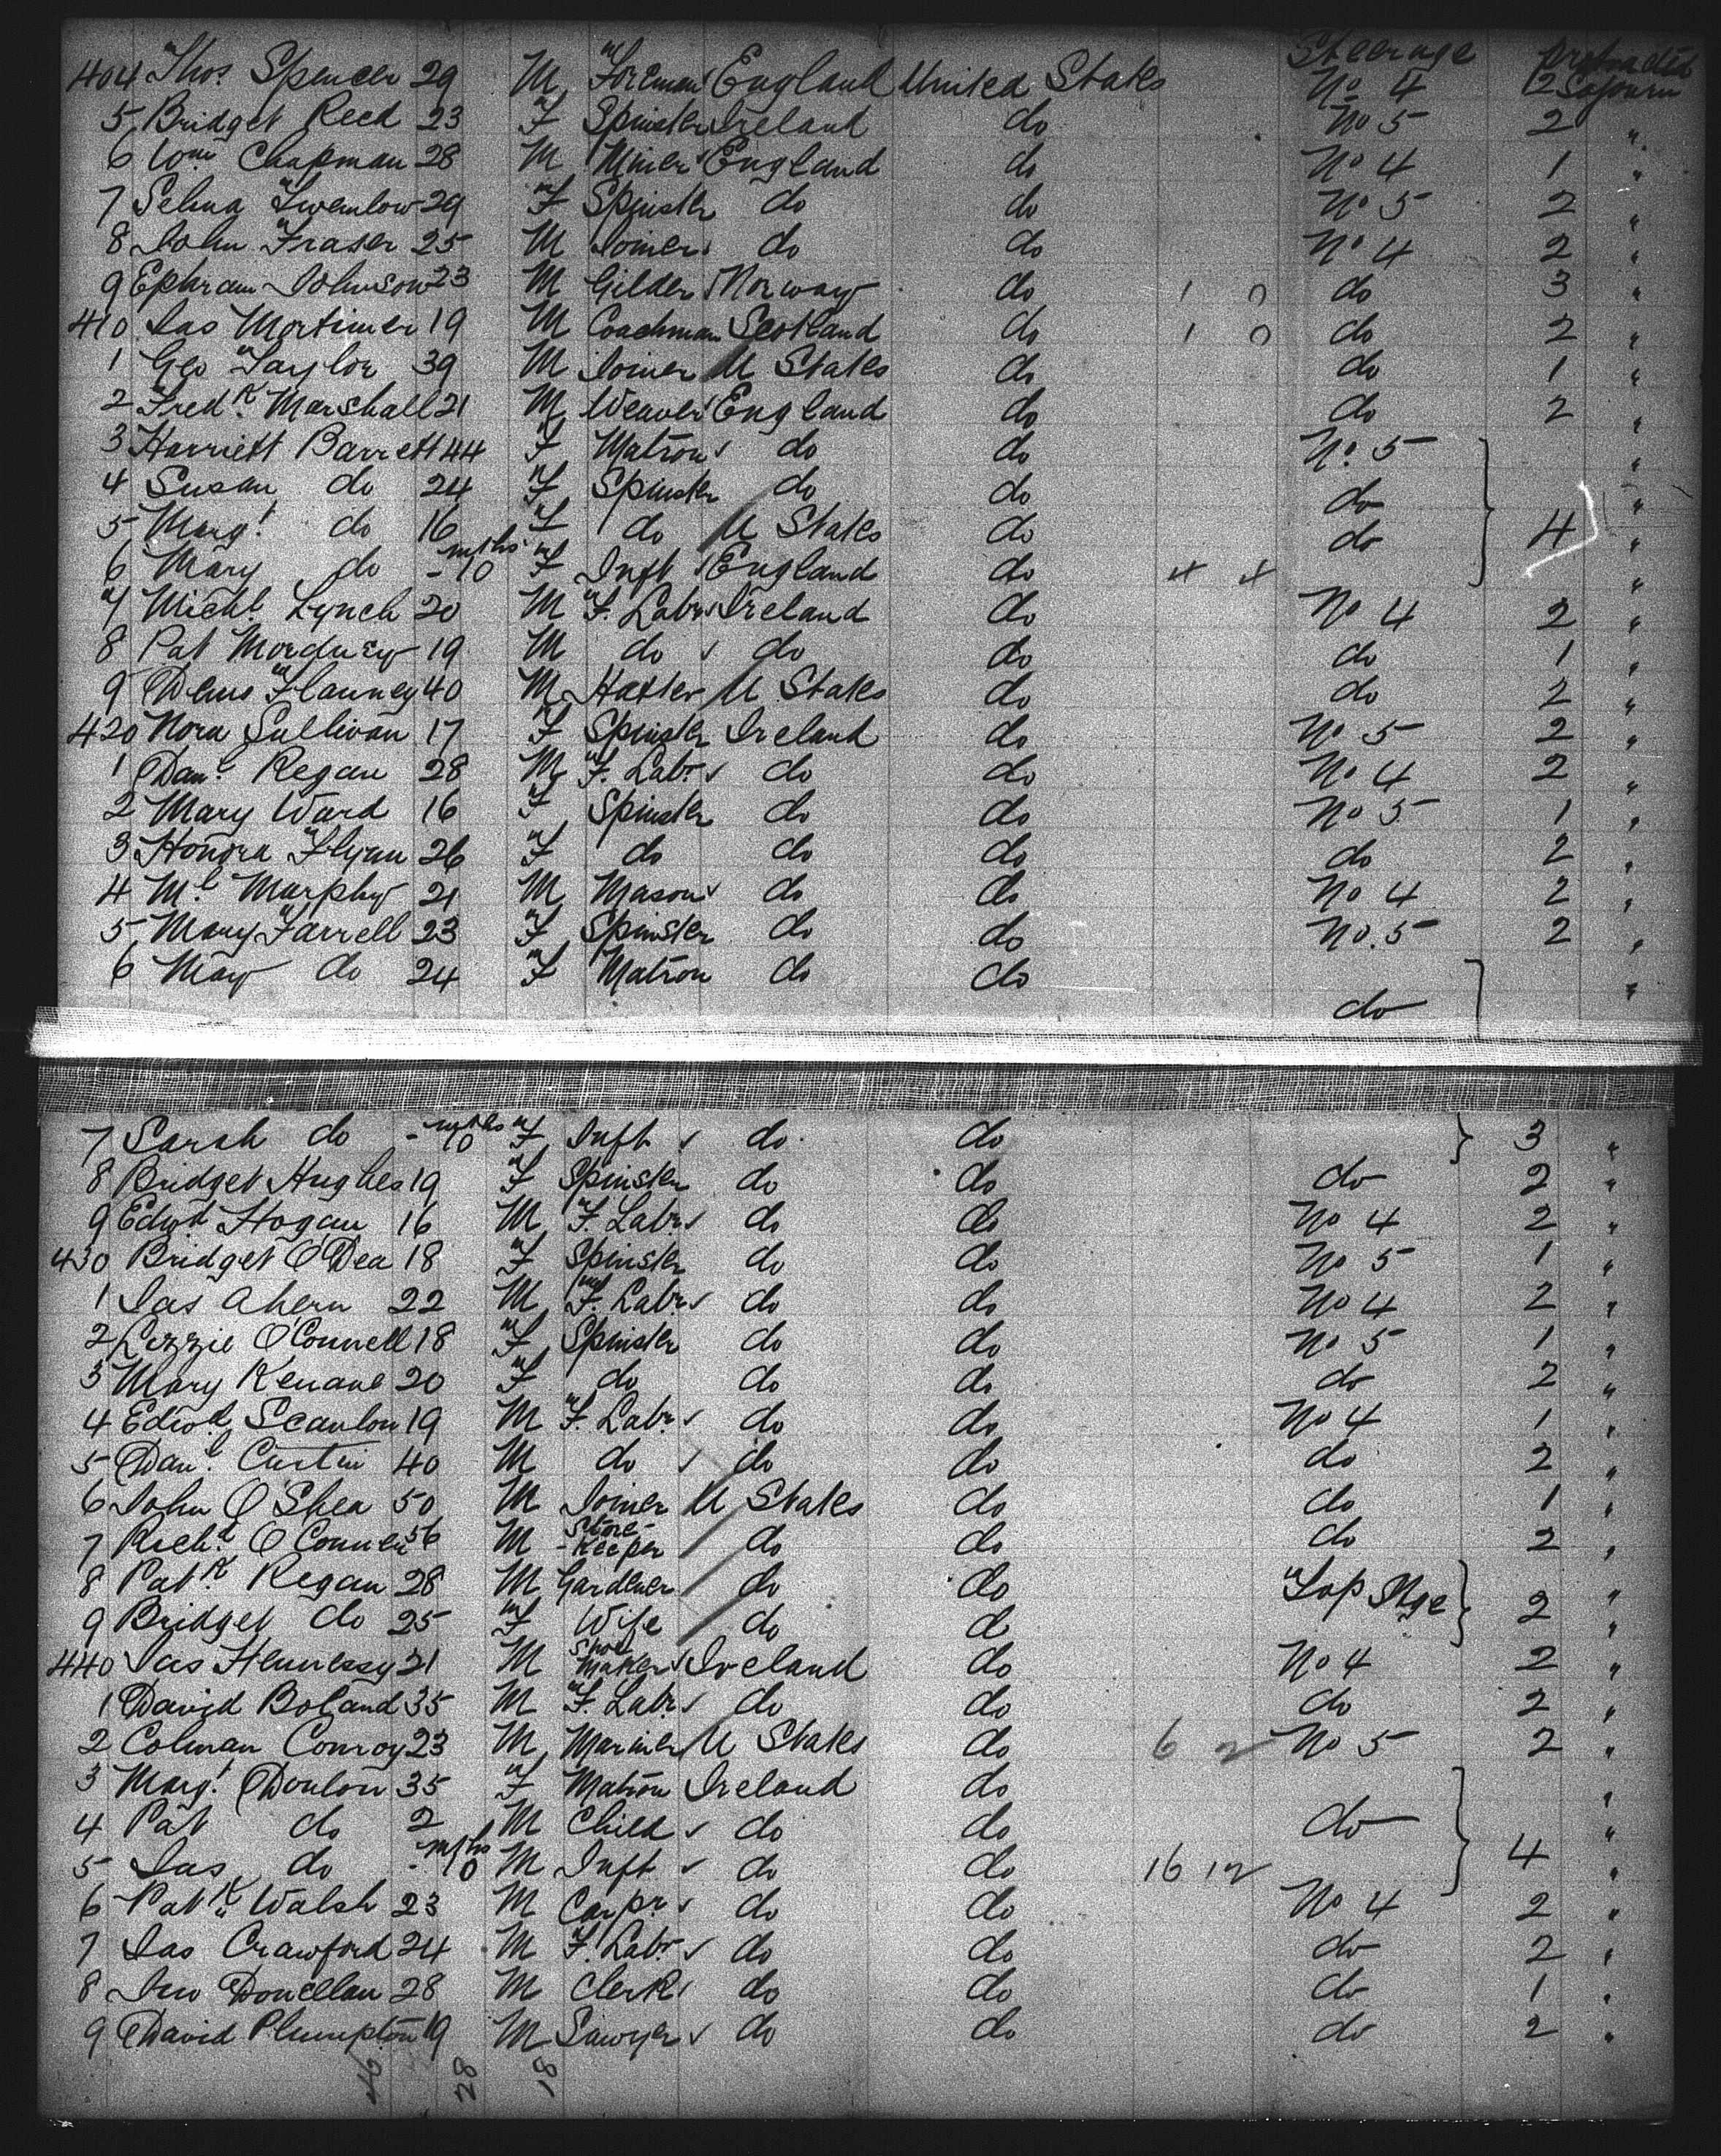 Steerage protracted
404 Thos Spencer 29 M Foreman England United States No 4 2 Sojourn
5 Bridget Reed 23 F Spinster Ireland do No 5 2 "
6 Wm Chapman 28 M Miner England do No 4 1 "
7 Selina Twemlow 29 F Spinster do do No 5 2 "
8 John Fraser 25 M Joiner do do No 4 2 "
9 Ephraim Johnson 23 M Gilder Norway do 1 0 do 3 "
410 Jas Mortimer 19 M Coachman Scotland do 1 0 do 2 "
1 Geo Taylor 39 M Joiner U States do do 1 "
2 Fredk Marshall 21 M Weaver England do do 2 "
3 Harriett Barrett 44 F Matron do do No. 5 "
4 Susan do 24 F Spinster do do do "
5 Margt do 16 F do U States do do 4 "
6 Mary do - 10 mths F Inft England do 4 4 "
7 Michl Lynch 20 M F. Labr Ireland do No 4 2 "
8 Pat 19 M do do do do 1 "
9 Denis Flanney 40 M Hatter U States do do 2 "
420 Nora Sullivan 17 F Spinster Ireland do No 5 2 "
1 Danl Regan 28 M F. Labr do do No 4 2 "
2 Mary Ward 16 F Spinster do do No 5 1 "
3 Honora Flynn 26 F do do do do 2 "
4 Ml Murphy 21 M Mason do do No 4 2 "
5 Mary Farrell 23 F Spinster do do No. 5 2 "
6 May do 24 F Matron do do "
do
7 Sarah do - 10 mths F Inft do do 3 "
8 Bridget Hughes 19 F Spinster do do do 2 "
9 Edwd Hogan 16 M F. Labr do do No 4 2 "
430 Bridget O'Dea 18 F Spinster do do No 5 1 "
1 Jas Ahern 22 M F. Labr do do No 4 2 "
2 Lizzie O'Connell 18 F Spinster do do No 5 1 "
3 Mary Kenane 20 F do do do do 2 "
4 Edwd Scanlon 19 M F. Labr do do No 4 1 "
5 Danl Curtin 40 M do do do do 2 "
6 John O'Shea 50 M Joiner U States do do 1 "
7 Richd 56 M Store-Keeper do do do 2 "
8 Patk Regan 28 M Gardener do do Top Stge "
9 Bridget do 25 F Wife do d 2 "
440 Jas Hennessy 21 M Shoe Maker Ireland do No 4 2 "
1 David Boland 35 M F. Labr do do do 2 "
2 Colman Conroy 23 M Mariner U States do 6 2 No 5 2 "
3 Margt Donlon 35 F Matron Ireland do "
4 Pat do 2 M Child do do do "
5 Jas do - 10 mths M Inft do do 16 12 4 "
6 Patk Walsh 23 M Carpr do do No 4 2 "
7 Jas Crawford 24 M F. Labr do do do 2 "
8 Jno Donellan 28 M Clerk do do do 1 "
9 David Plumpton 19 M Sawyer do do do 2 "
46 28 18